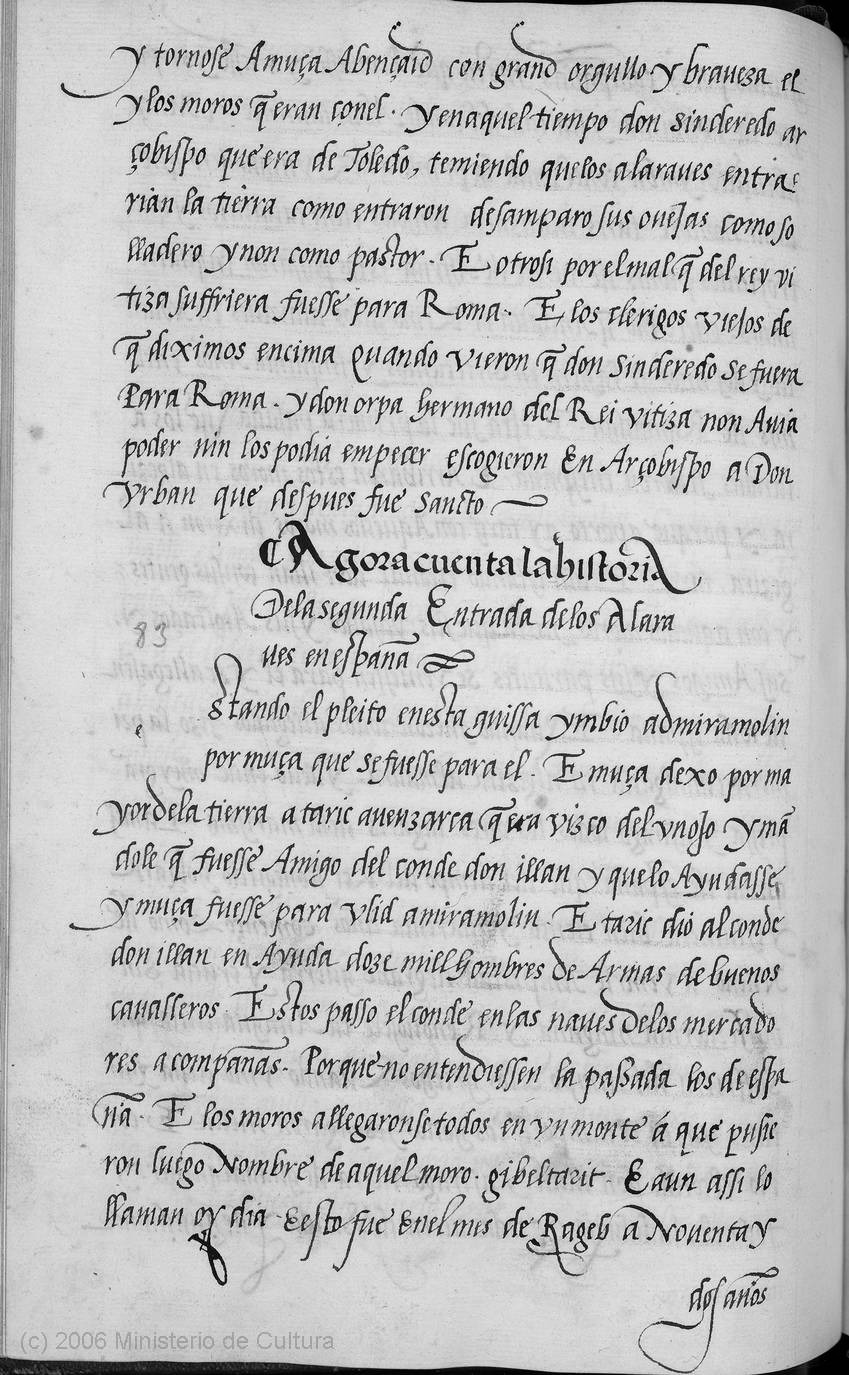 y tornose Amuça Abençaid con grand orgullo y braveza el
y los moros q̃ eran conel. y en aquel tiempo don sinderedo ar
çobispo que era de Toledo, temiendo quelos alaraves entra
rian la tierra como entraron desamparo sus ovejas como so
lladero y non como pastor. E otrosi por el mal q̃ del rey vi
tiza suffriera fuesse para Roma. E los clerigos viejos de
q̃ diximos encima Quando vieron q̃ don sinderedo se fuera
Para Roma. y don orpa hermano del Rei vitiza non Avia
poder nin los podia empecer escogieron En Arçobispo a Don
Vrban que despues fue sancto
Agora cuenta la historia
De la segunda Entrada de los Alara
ves en españa
83
e
Stando el pleito en esta guissa ymbio admiramolin
por muça que se fuesse para el. E muça dexo por ma
yor de la tierra a taric avenzarca q̃ era vizco del vn ojo y mã
dole q̃ fuesse Amigo del conde don illan y que lo Ayudasse
y muça fuesse para vlid amiramolin. E taric dio al conde
don illan en Ayuda doze mill hombres de Armas de buenos
cavalleros. Estos passo el conde en las naves de los mercado
res a compañas. Porque no entendiessen la passada los de espa
ña. E los moros allegaronse todos en vn monte á que pusie
ron luego Nombre de aquel moro. gibeltarit. E aun assi lo
llaman oy dia. E esto fue En el mes de Rageb a Noventa y
dos años
(c) 2006 Ministerio de Cultura